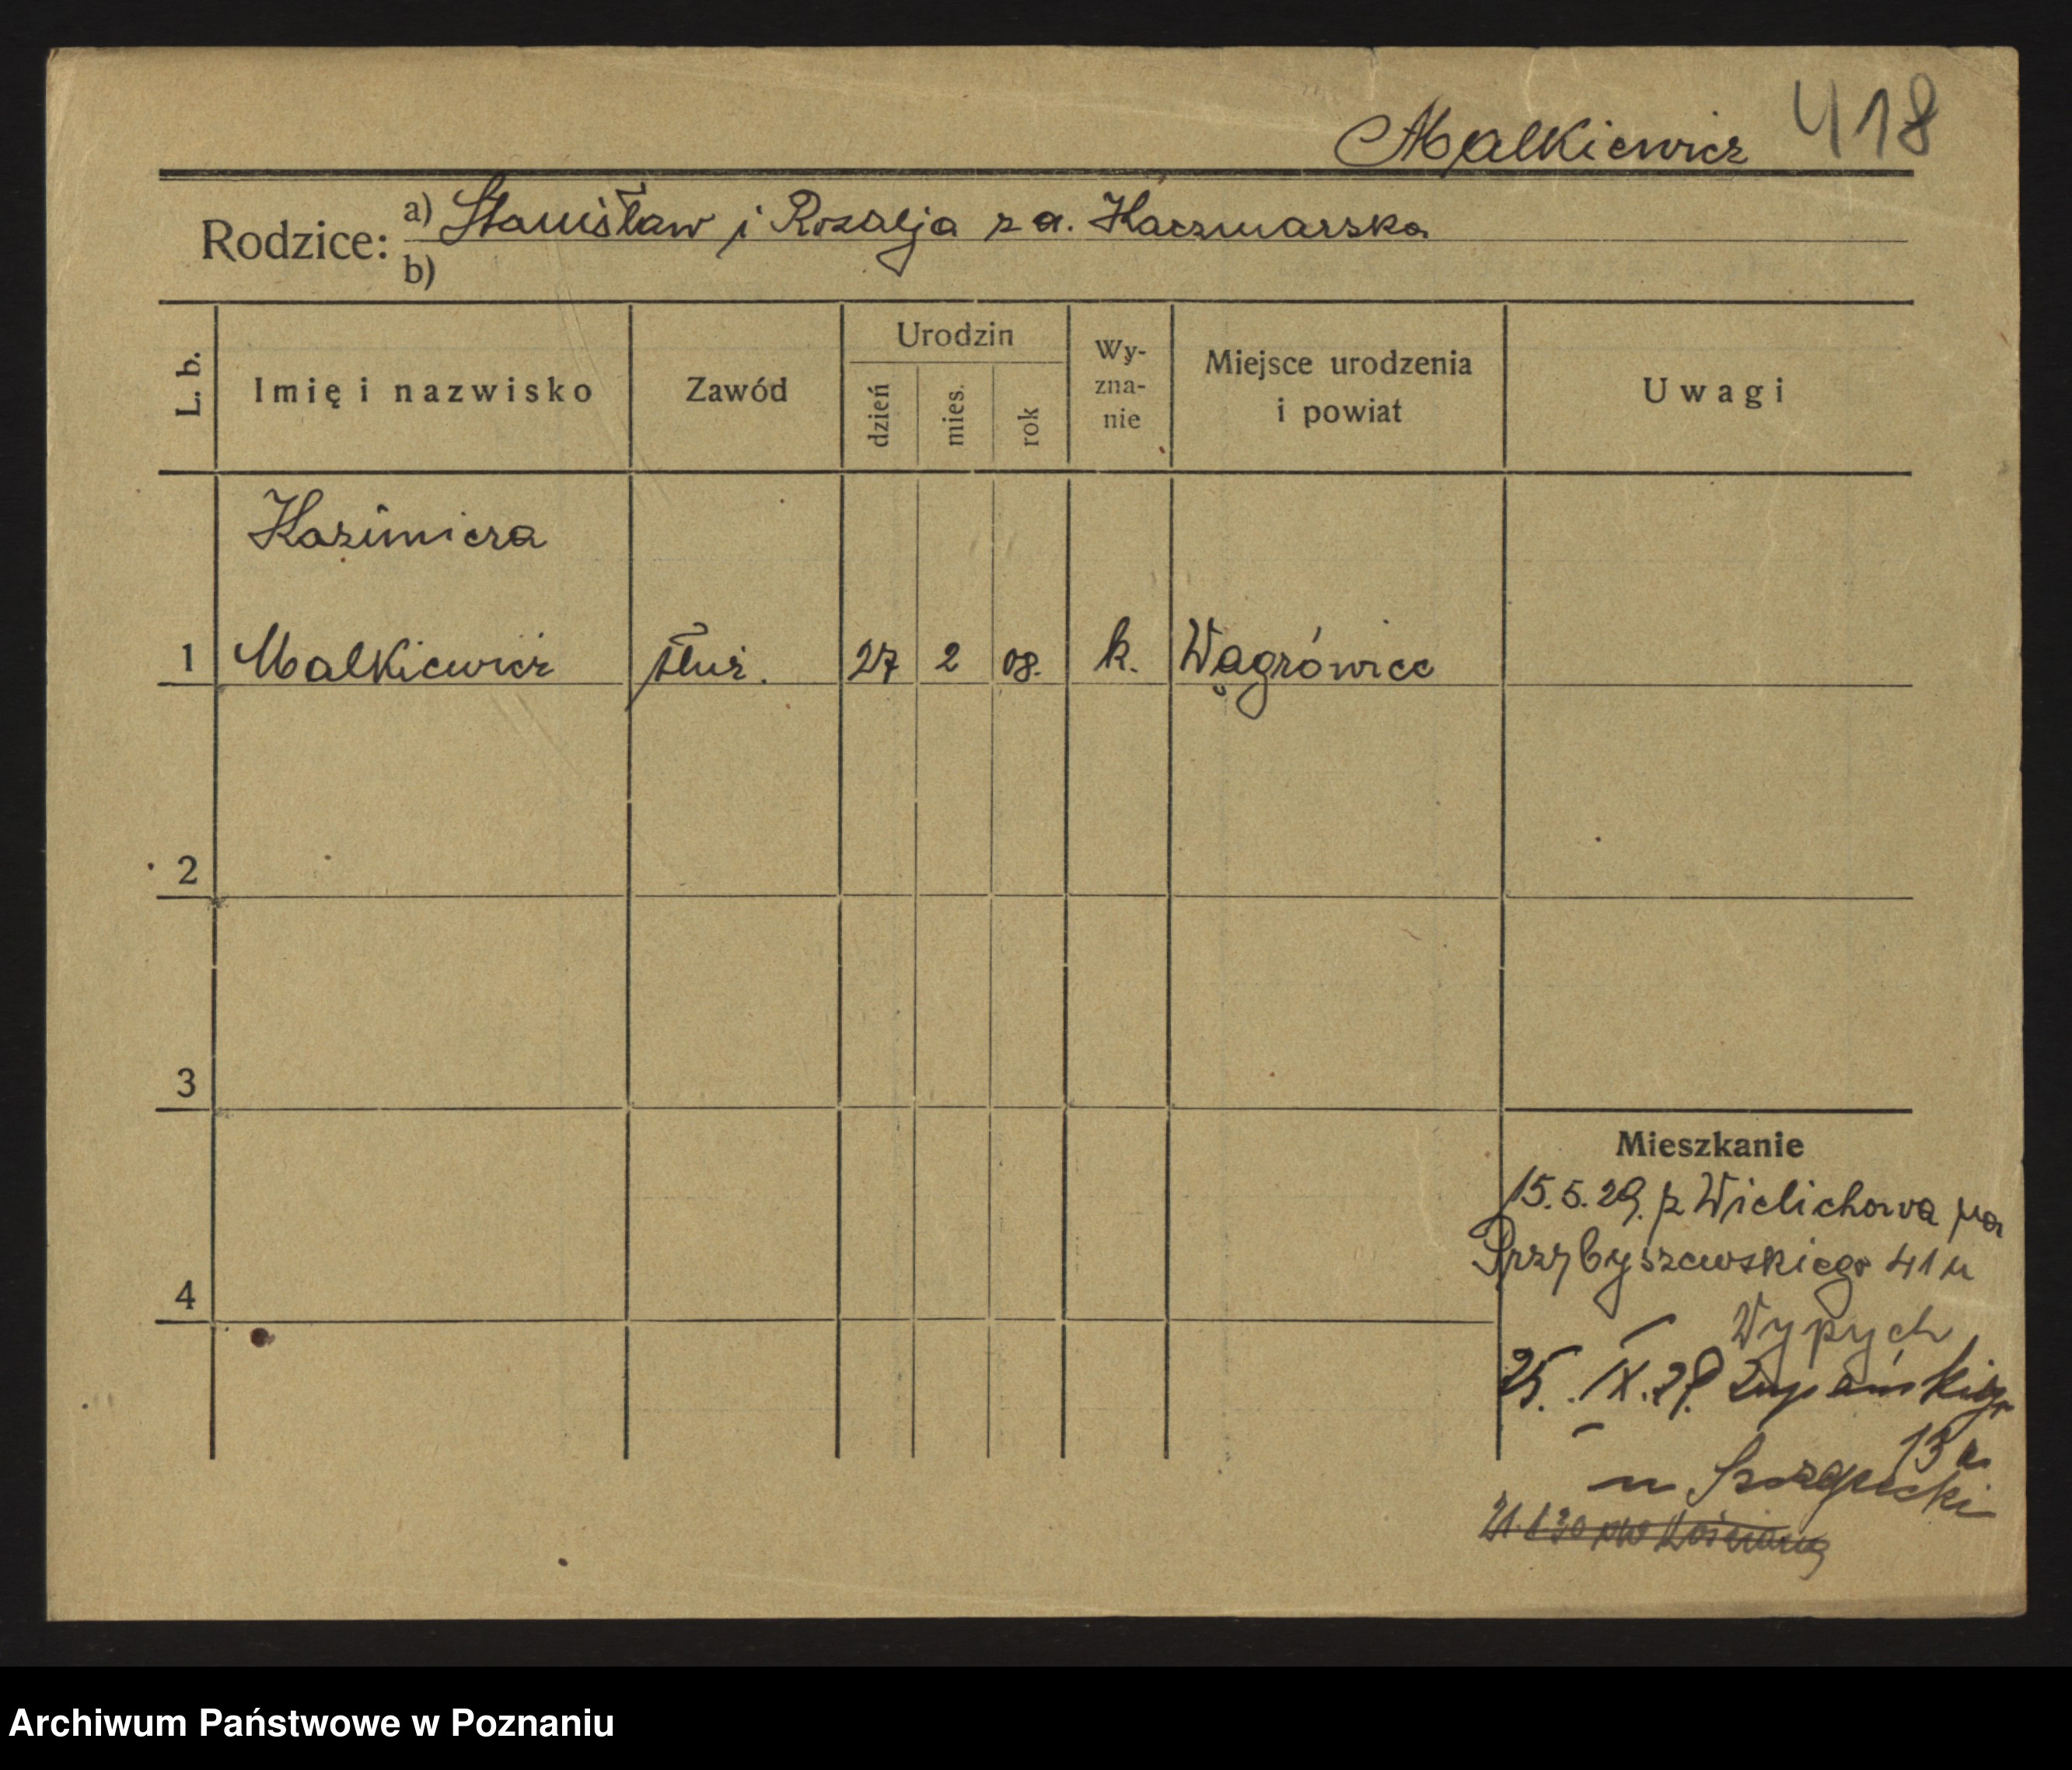 Malkiewicz 418
Rodzice: a) Stanisław i Rozalja z d. Kaczmarska
b)
L. b. Imię i nazwisko Zawód Urodzin dzień mies. rok Wy-zna-nie Miejsce urodzenia i powiat Uwagi
Kazimiera
1 Malkiewicz służ. 27 2 08. k. Wągrówiec
2
3
4
Mieszkanie
15.5.29. z Wielichowa na
Przybyszewskiego 41 u
Wypych
25. IX. 29 Żupańskiego
13 a
u
21. 30
Archiwum Państwowe w Poznaniu